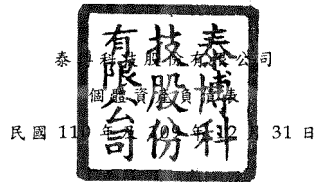 泰博科技股份有限公司
個體資產負債表
民國 110 年及 109 年 12 月 31 日
泰博科
技股份
有限公司